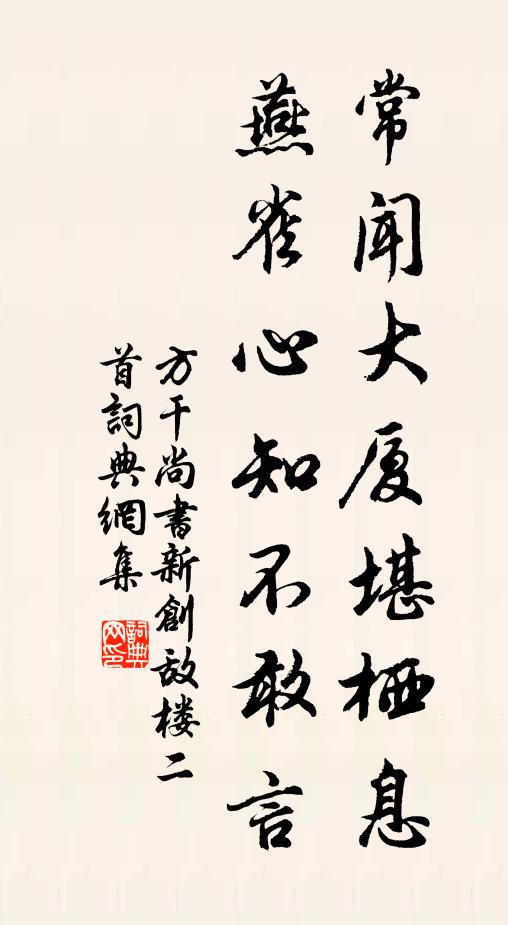 常闻大厦堪栖息
燕雀心知不敢言
方干尚書新創敌楼二
首詞典網集
詞典
网印